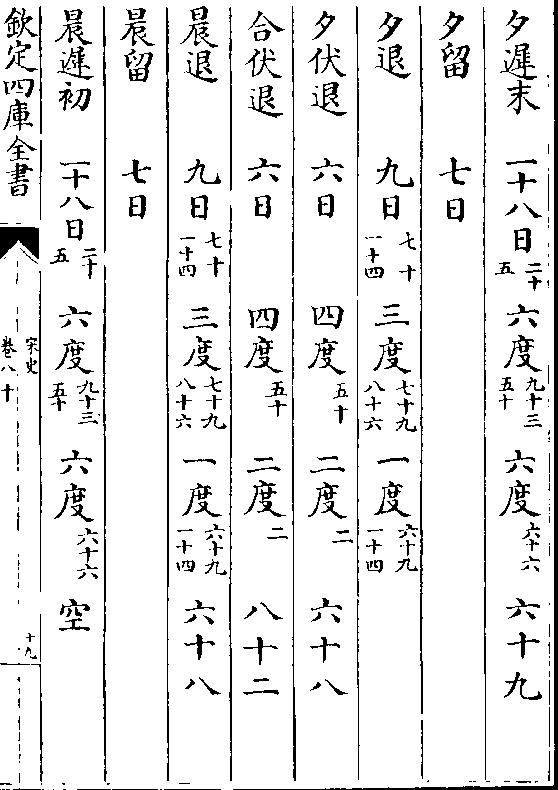 夕遲末 一十八日二十五 六度九十三五十 六度六十六 六十九
夕留 七日
夕退 九日七十一十四 三度七十九八十六 一度六十九一十四
夕伏退 六日 四度五十 二度二 六十八
合伏退 六日 四度五十 二度二 八十二
晨退 九日七十一十四 三度七十九八十六 一度六十九一十四 六十八
晨留 七日
晨遲初 一十八日二十五 六度九十三五十 六度六十六 空
欽定四庫全書
宋史
卷八十
十九